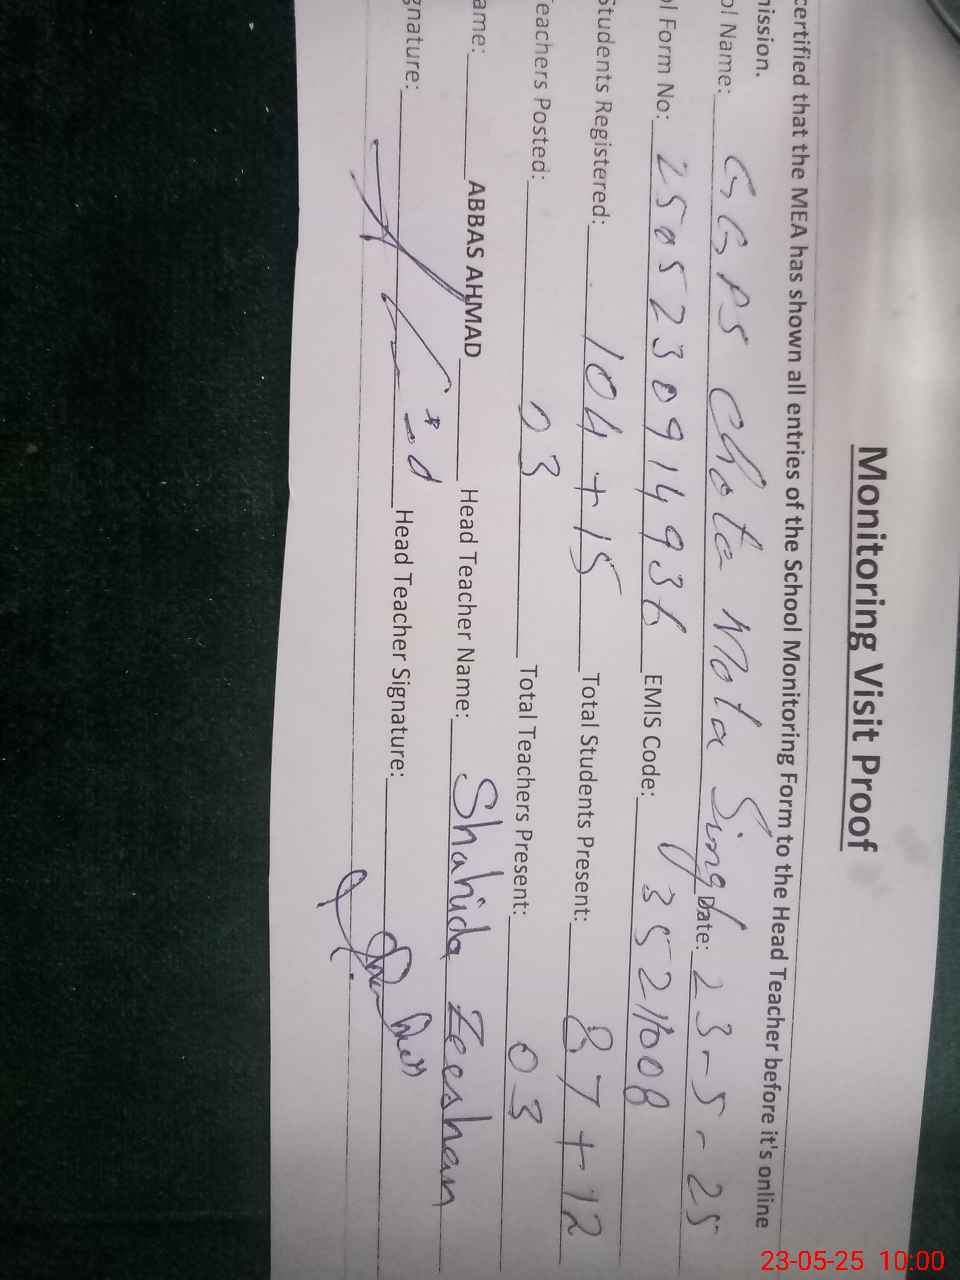 Monitoring Visit Proof
certified that the MEA has shown all entries of the School Monitoring Form to the Head Teacher before it's online
mission.
ol Name: GGPS Chota Mota Singh Date: 23-5-25
ol Form No: 2505230914936 EMIS Code: 35211008
Students Registered: 104 + 15 Total Students Present: 87 + 12
eachers Posted: 03 Total Teachers Present: 03
ame: ABBAS AHMAD Head Teacher Name: Shahida Zeeshan
gnature: Head Teacher Signature:
23-05-25 10:00